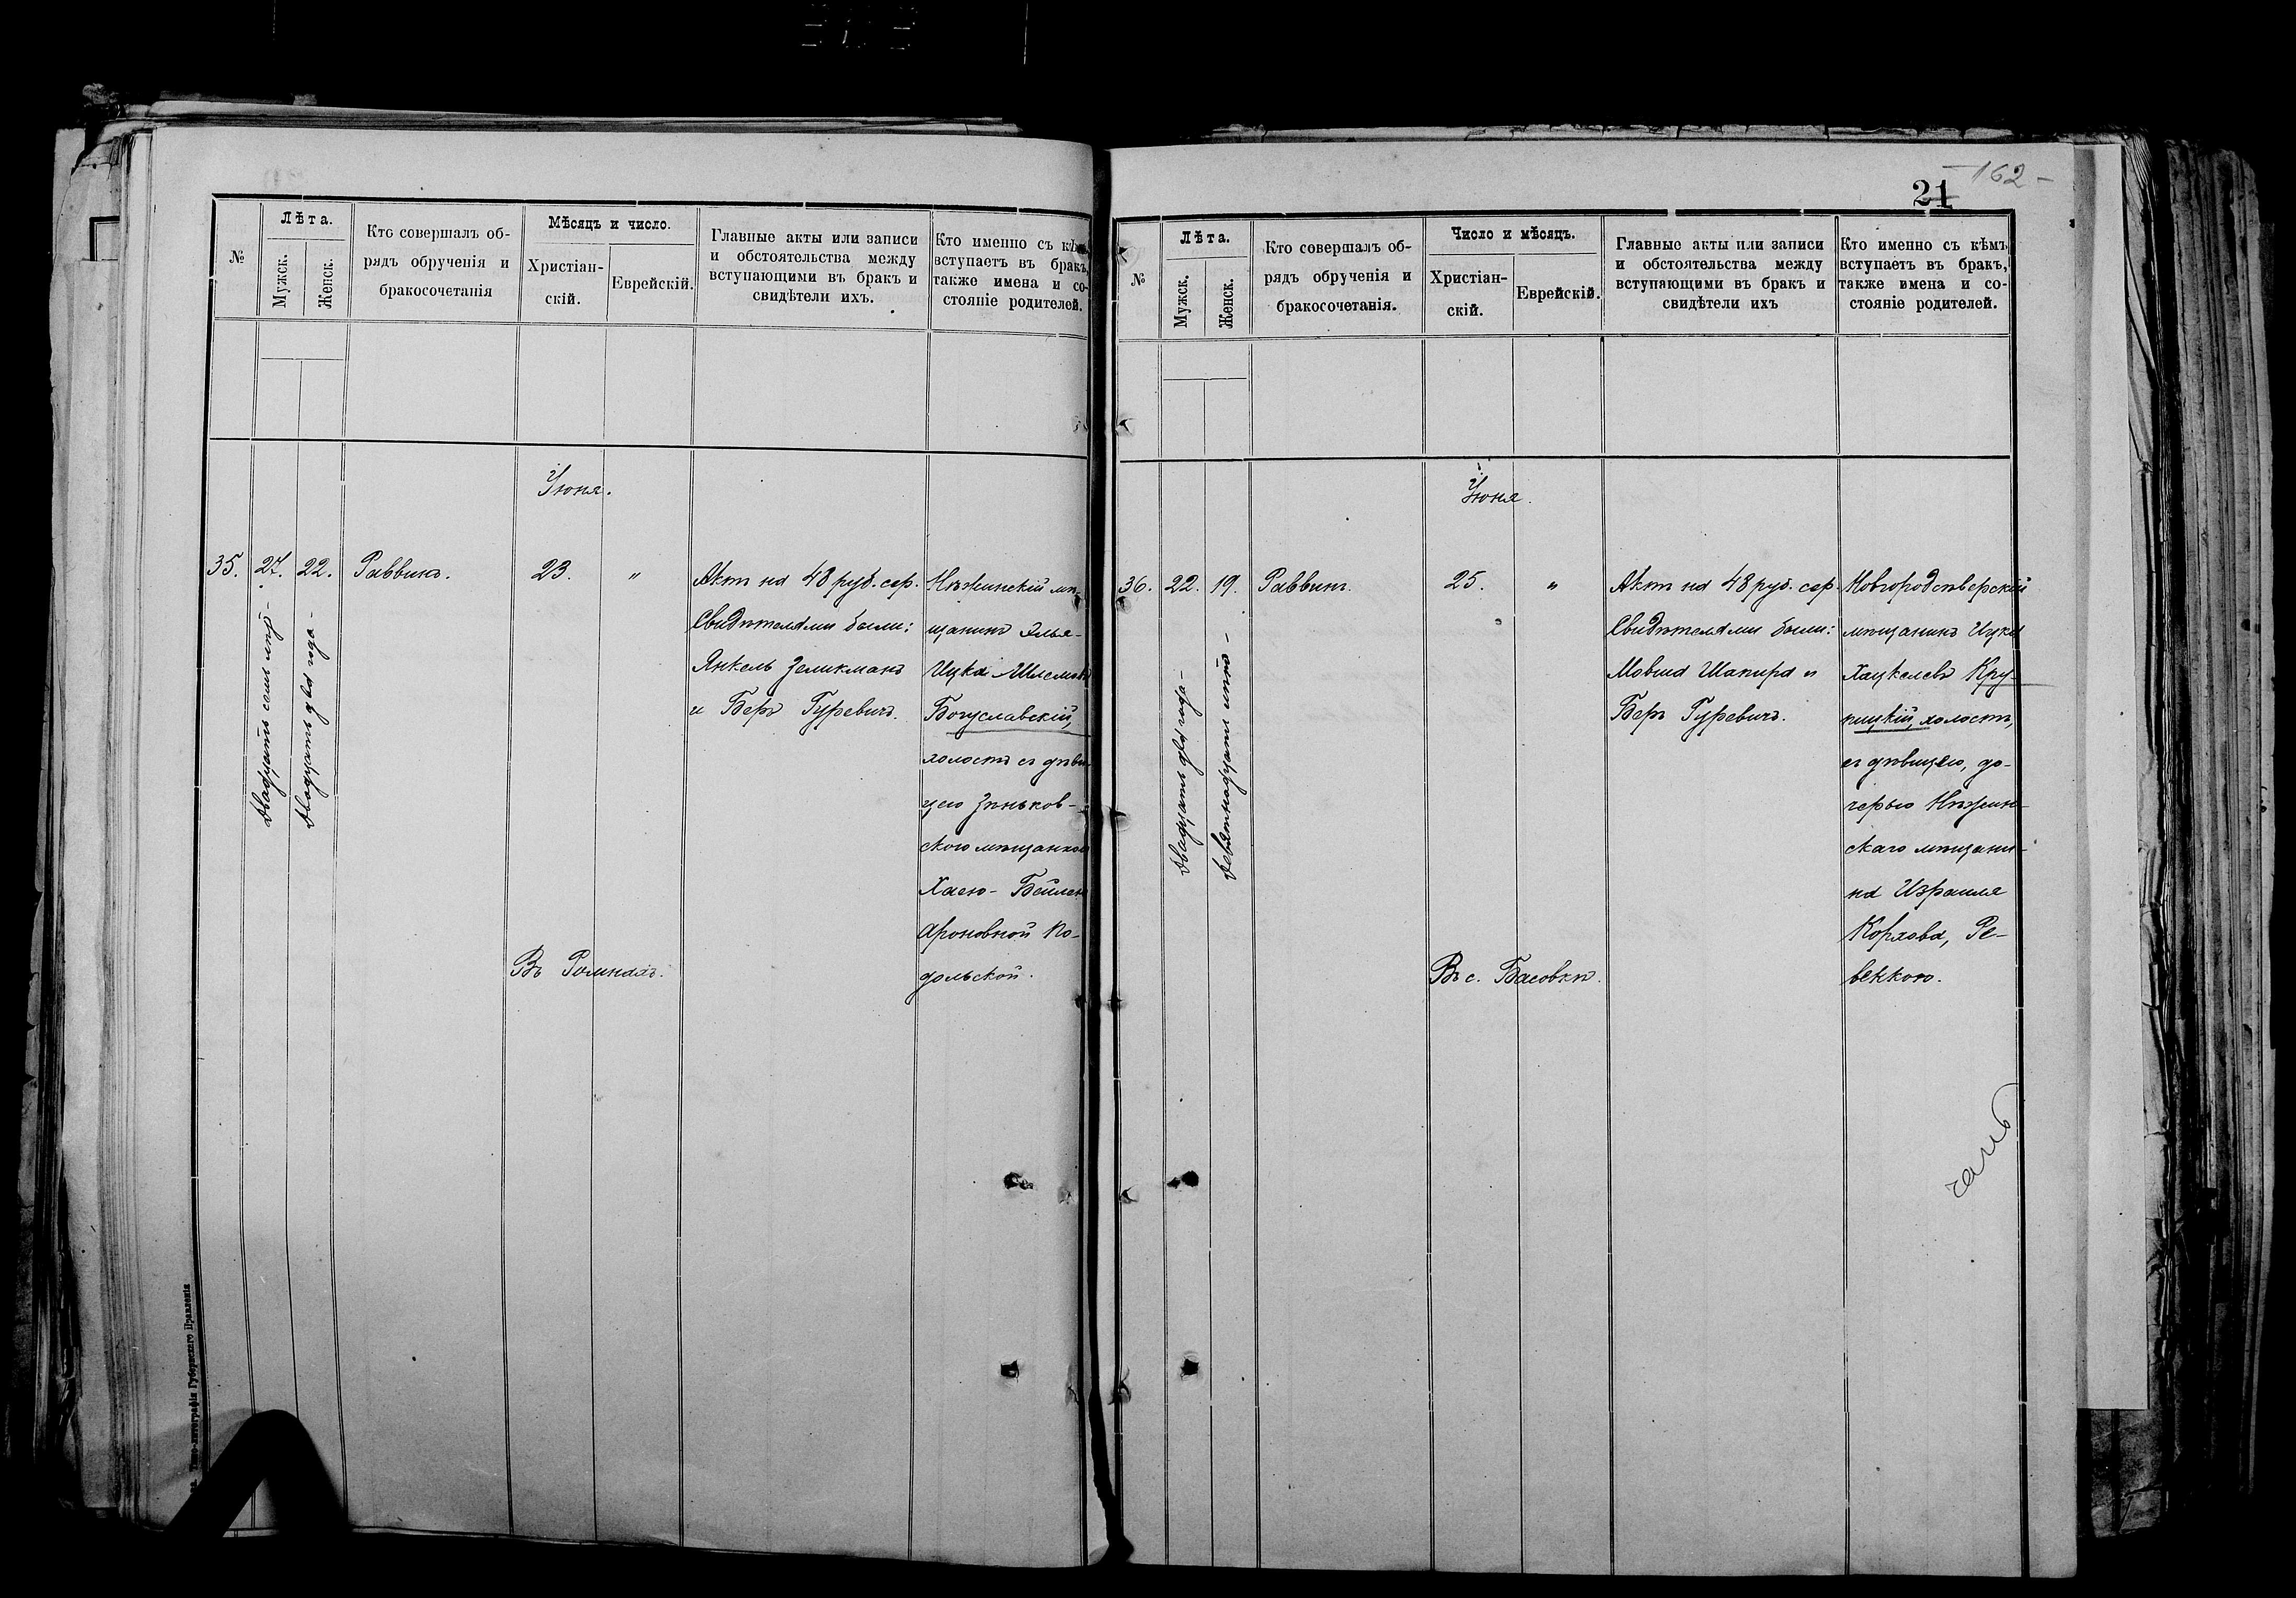 №
Лѣта.
Мужск.
Женск.
Кто совершалъ об-
рядъ обрученія и
бракосочетанія
Мѣсяцъ и число.
Христіан-
скій.
Еврейскій.
Главные акты или записи
и обстоятельства между
вступающими въ бракъ и
свидѣтели ихъ.
Кто именно съ кѣмъ
вступаетъ въ бракъ,
также имена и со-
стояніе родителей.
Іюня.
35.
27.
Двадцать семь лѣтъ -
22.
Двадцать два года -
Раввинъ.
23.
"
Въ Ромнахъ.
Актъ на 48 руб. сер.
Свидѣтелями были:
Янкель Зеликманъ
и Беръ Гуревичъ.
Нѣжинскій мѣ-
щанинъ Элья-
Ицка Шлемовъ
Богуславскій,
холостъ съ дѣви-
цею Зѣньков-
ского мѣщанкою
Хаею-Бейлею
Ароновной По-
дольской.
Губернскаго Правленія
21
-162-
№
Лѣта.
Мужск.
Женск.
Кто совершалъ об-
рядъ обрученія и
бракосочетанія.
Число и мѣсяцъ.
Христіан-
скій.
Еврейскій.
Главные акты или записи
и обстоятельства между
вступающими въ бракъ и
свидѣтели ихъ
Кто именно съ кѣмъ
вступаетъ въ бракъ,
также имена и со-
стояніе родителей.
Іюня.
36.
22.
Двадцать два года -
19.
Девятнадцать лѣтъ -
Раввинъ.
25.
"
Въ с. Басовкѣ.
Актъ на 48 руб. сер.
Свидѣтелями были:
Мовша Шапира и
Беръ Гуревичъ.
Новгородсѣверскій
мѣщанинъ Ицка
Хацкелевъ Кру-
пицкій, холостъ,
съ дѣвицею, до-
черью Нѣжин-
скаго мѣщани-
на Израиля
Корхова, Ре-
веккою.